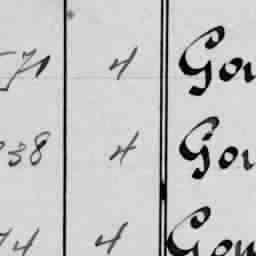 71 4 Gou
38 4 Gou
74 4 Gou